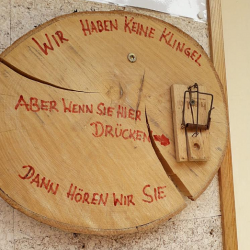 WIR HABEN KEINE KLINGEL
ABER WENN SIE HIER
DRÜCKEN
DANN HÖREN WIR SIE